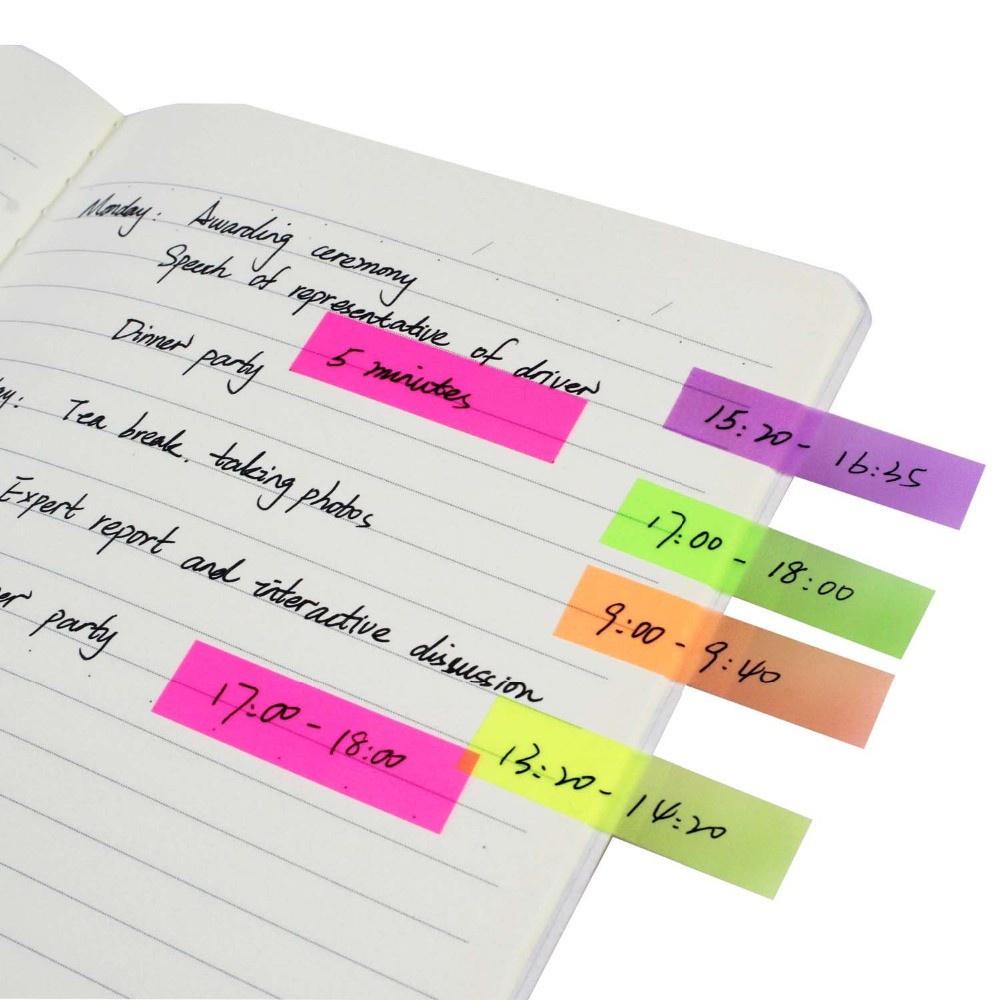 Monday: Awarding ceremony
Speech of representative of driver
Dinner party
5 minutes
15:20 - 16:35
y: Tea break. taking photos
17:00 - 18:00
Expert report and interactive discussion
9:00 - 9:40
er party
17:00 - 18:00
13:20 - 14:20